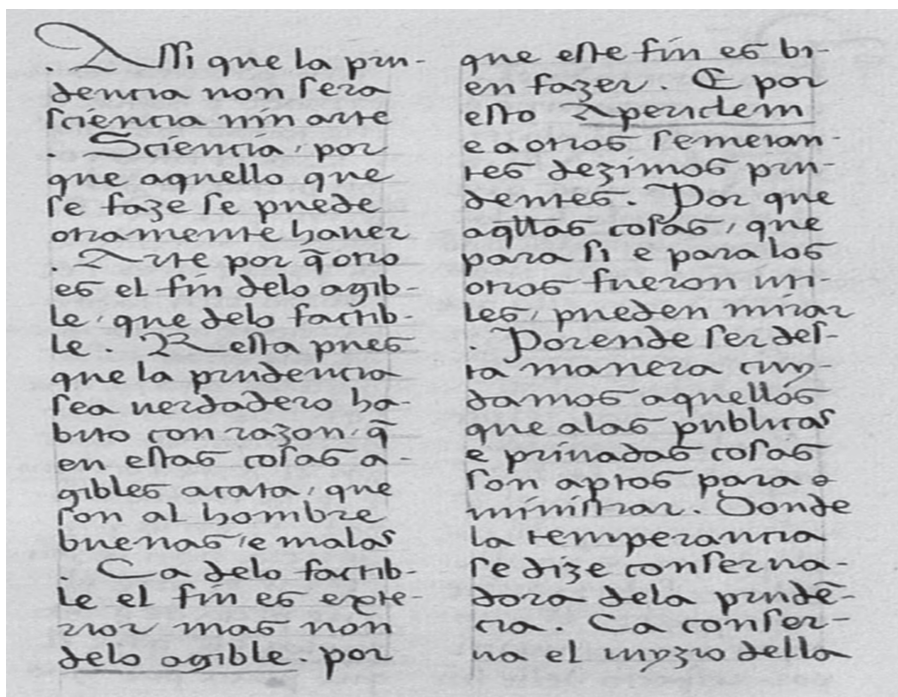 . Assi que la pru-
dencia non sera
sciencia nin arte
. Sciencia, por
que aquello que
se faze se puede
otramente hauer
. Arte por q̄ otro
es el fin delo agib-
le, que delo factib-
le. Resta pues
que la prudencia
sea uerdadero ha-
bito con razon, q̄
en estas cosas a-
gibles acata, que
son al hombre
buenas, e malas
. Ca delo factib-
le el fin es exte-
rior mas non
delo agible. por
que este fin es bi-
en fazer. E por
esto Apericlem
e a otros semeian-
tes dezimos pru-
dentes. Por que
aq̄llas cosas, que
para si e para los
otros fueron uti-
les, pueden mirar
. Porende ser des-
ta manera cuy-
damos aquellos
que alas publicas
e priuadas cosas
son aptos para a
ministrar. Donde
la temperancia
se dize conserua-
dora dela prudē-
cia. Ca conser-
ua el iuyzio della